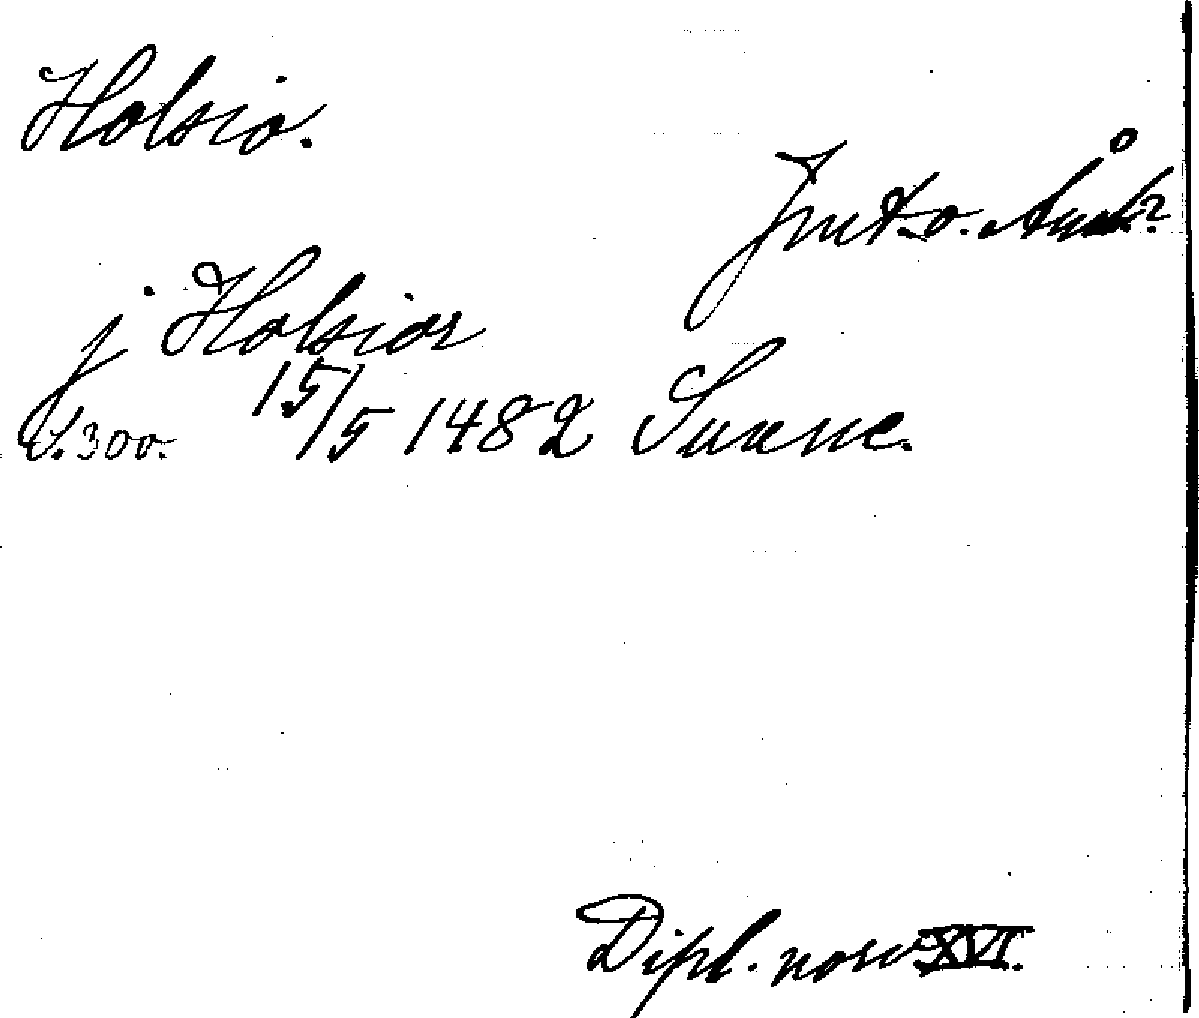 Holsio.
Jmt. o. Ång?
j Holsior
s. 300. 15/5 1482 Sunne.
Dipl. norv. XVI.